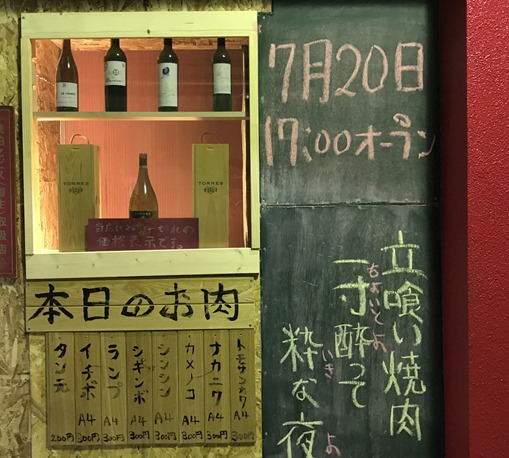 7月20日
17:00オープン
立喰い焼肉
一寸酔って
ちょいとよ
粋な夜
いき
よ
TORRES
TORRES
価格表示です。
本日のお肉
トモサンカク A4 300円
ナカニク A4 300円
カメノコ A4 300円
シンシン A4 300円
シギンボ A4 300円
ランプ A4 300円
イチボ A4 300円
タン元 200円